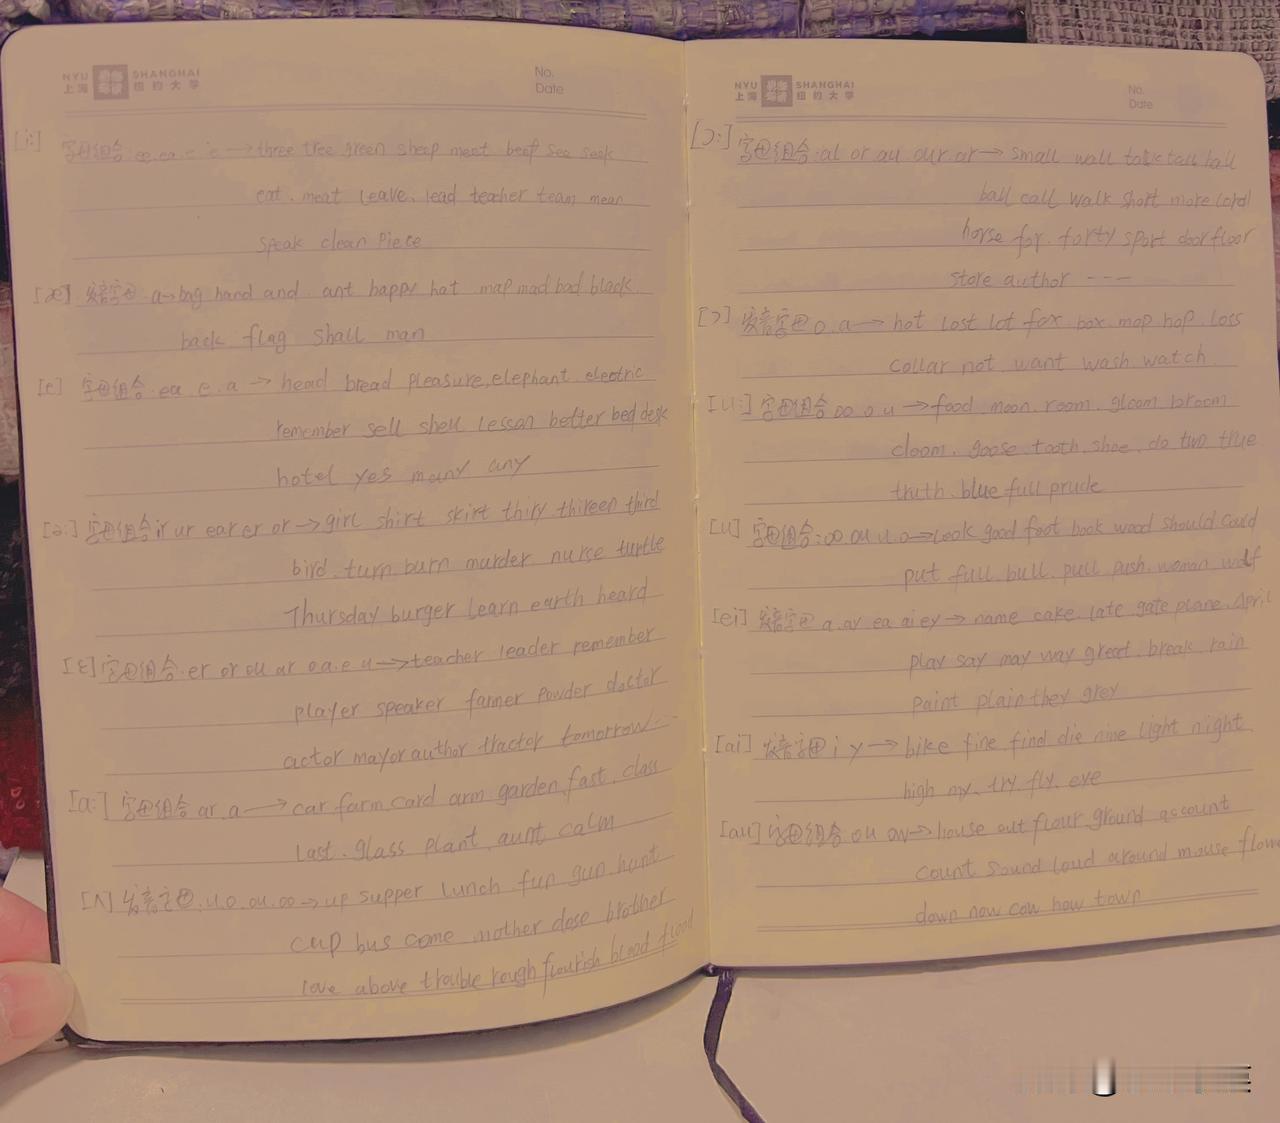 NYU SHANGHAI
上海 纽约大学
No.
Date
[i:] 字母组合 ee. ea. e ie → three tree green sheep meet beef see seek
eat. meat leave. lead teacher team mean
speak clean piece
[æ] 发音字母 a→bag hand and. ant happy hat map mad bad black
back flag shall man
[e] 字母组合. ea. e. a → head bread pleasure. elephant electric
remember sell shell lesson better bed desk
hotel yes many any
[ə:] 字母组合 ir ur ear er or → girl shirt skirt thiry thireen third
bird. turn burn murder nurse turtle
Thursday burger learn earth heard
字母组合. er or ou ar o a. e. u → teacher leader remember
player speaker farmer powder doctor
actor mayor author tractor tomorrow
[a:] 字母组合 ar. a → car farm card arm garden fast. class
last. glass plant aunt calm
[ʌ] 发音字母. u. o. ou. oo → up supper lunch fun gun hunt
cup bus come mother dose brother
love above trouble rough flourish blood flood
NYU SHANGHAI
上海 纽约大学
No.
Date
[ɔ:] 字母组合. al or au our. ar → small wall talk tall hall
ball call walk short more lord
horse for. forty sport door floor
store author ---
[ɔ] 发音字母 o. a → hot lost lot fox box mop hop. loss
collar not want wash watch
[u:] 字母组合 oo. o u → food moon. room. gloom broom
cloom. goose tooth. shoe. do two true
truth. blue full prude
[u] 字母组合: oo. ou u. o → look good foot book wood should could
put full bull. pull push. woman wolf
[ei] 发音字母 a. ay ea ai ey → name cake. late gate plane. April
play say may way great. break rain
paint plain they grey
[ai] 发音字母 i y → bike fine find die nine light night
high my. try. fly. eye
[au] 字母组合 ou ow → house out flour ground account
count sound loud around mouse flow
down now cow how town